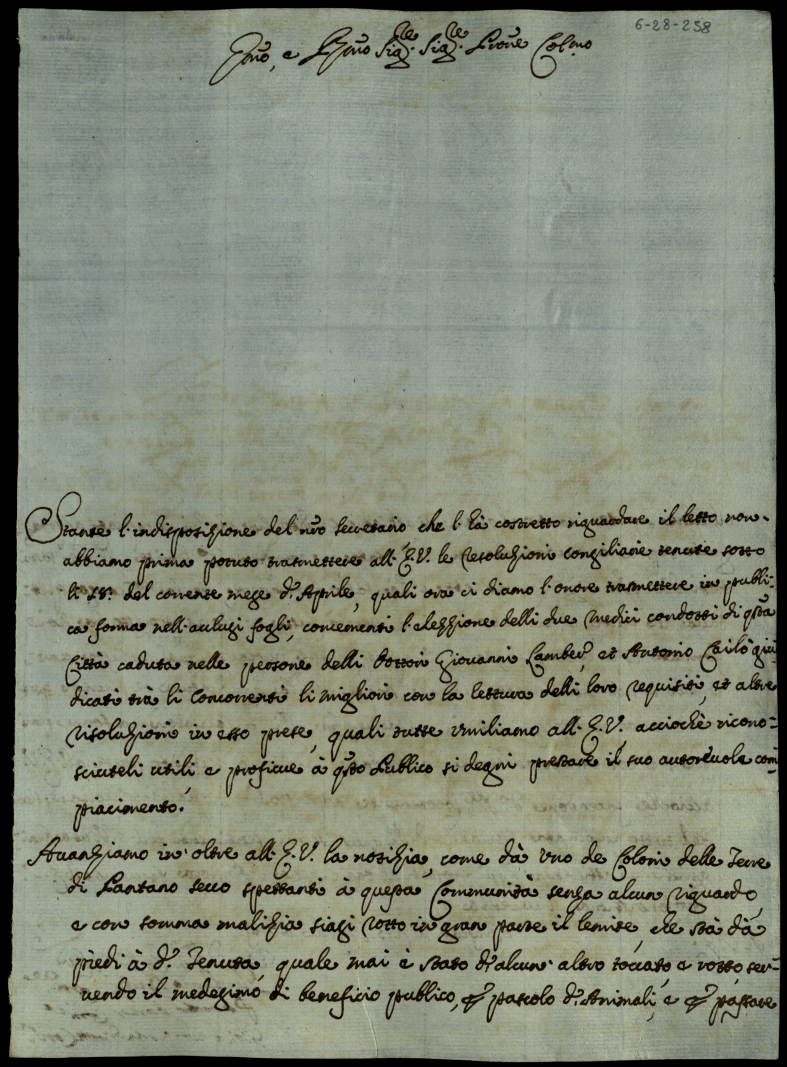 6-28-258
Emo, e Rmo Sig.re Sig.re Prone Colmo
Stante l'indisposizione del nro secretario che l'hà costretto riguardare il letto non
abbiamo prima potuto trasmettere all'E.V. le resoluzioni consiliarie tenute sotto
li 18. del corrente mese d'Aprile, quali ora ci diamo l'onore trasmettere in publi=
ca forma nell'acclusi fogli, concernenti l'elezzione delli due Medici condotti di qsta
Città caduta nelle persone delli Dottori Giovanni et Antonio giu=
dicati trà li Concorrenti li migliori con la lettura delli loro requisiti, et altre
risoluzioni in esso prese, quali tutte umiliamo all'E.V. acciochè ricono=
sciuteli utili e proficue à qsto Publico si degni prestare il suo autorevole com=
piacimento.
Avanziamo in oltre all'E.V. la notizia, come dà uno de Coloni delle Terre
di Pantano secco spettanti à questa Communità senza alcun riguardo,
e con somma malizia siasi rotto in gran parte il lemite, che stà dà
piedi à d.a Tenuta, quale mai è stato d'alcun' altro toccato, e rotto, ser=
vendo il medesimo di beneficio publico, per pascolo d'Animali, e per passare